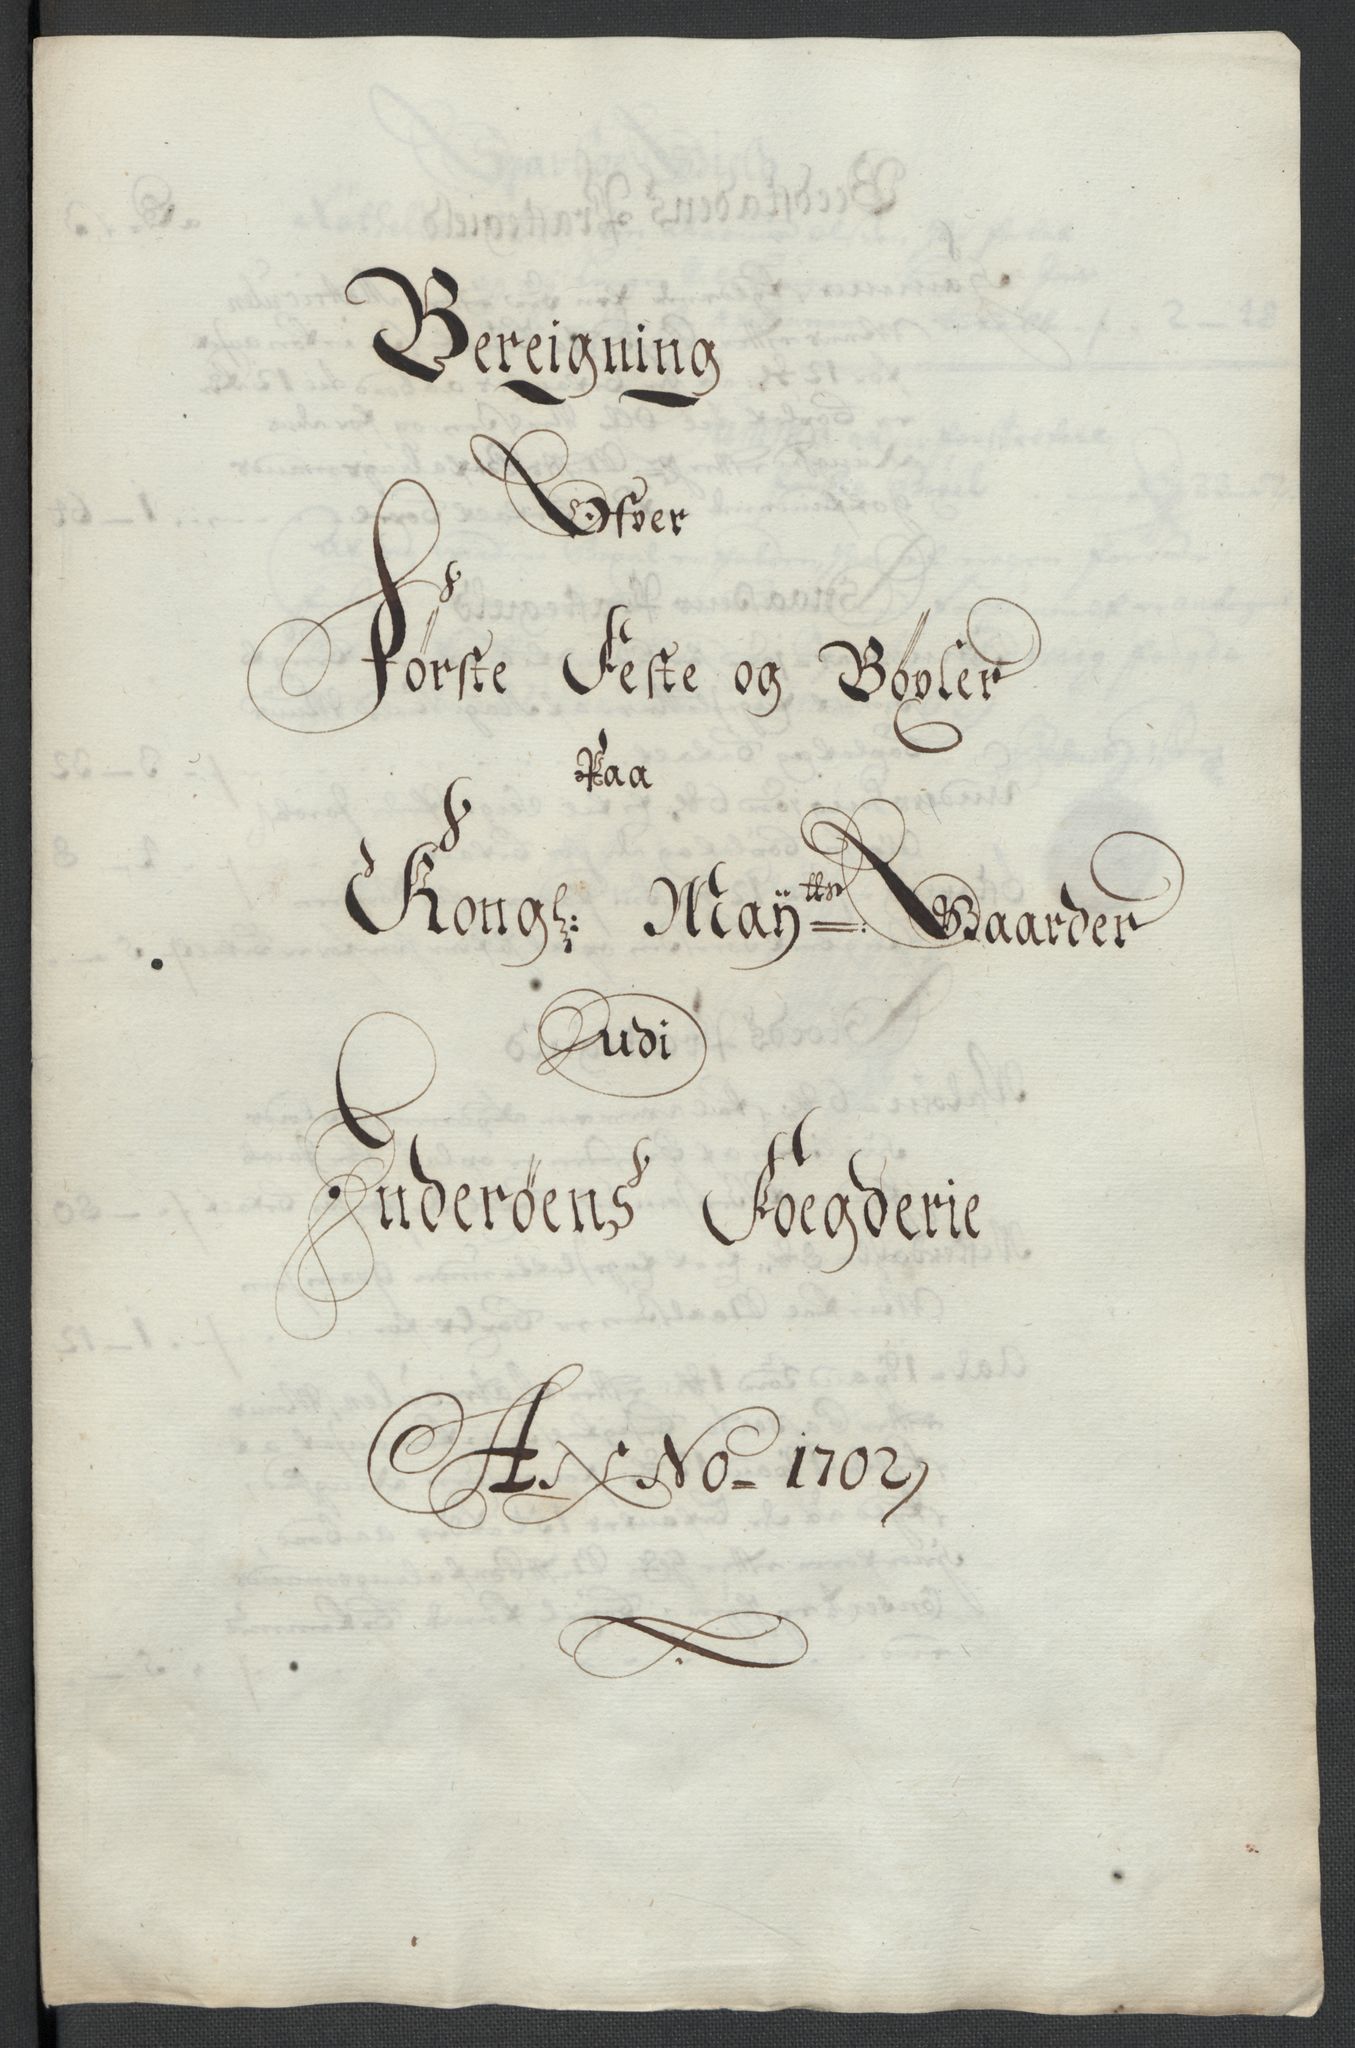 Bereigning
Ofver
Første Feste og Bøxler
Paa
Kongl: Maÿtts: Gaarder
udi
Inderøens Foegderie
ANNo- 1702